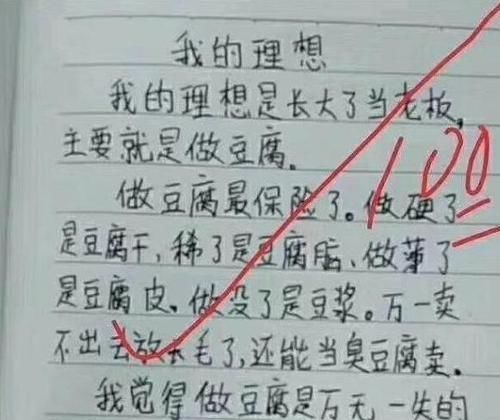 我的理想
我的理想是长大了当老板,
主要就是做豆腐.
做豆腐最保险了。做硬了
是豆腐干,稀了是豆腐脑、做薄了
是豆腐皮、做没了是豆浆。万一卖
不出去放长毛了,还能当臭豆腐卖.
我觉得做豆腐是万无一失的
100